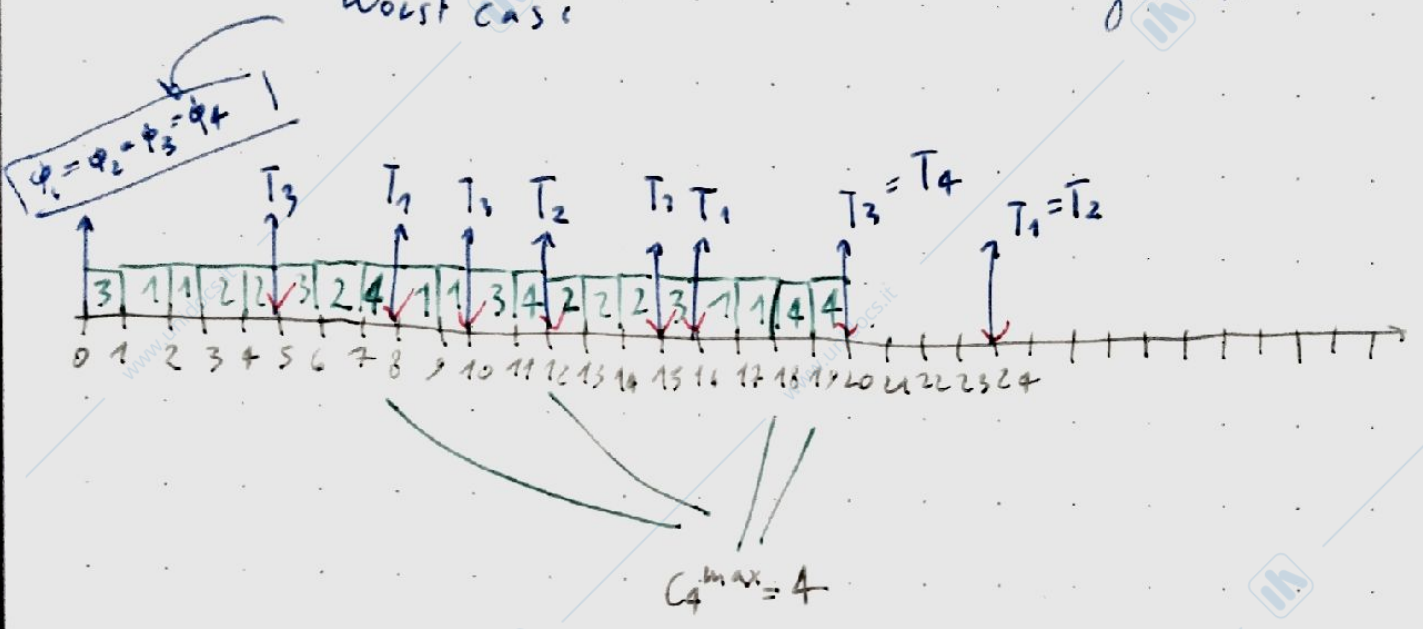 Worst case
φ₁ = φ₂ = φ₃ = φ₄
T₃ T₁ T₃ T₂ T₃ T₁ T₃ = T₄ T₁ = T₂
3 1 1 2 2 3 2 4 1 1 3 4 2 2 2 3 1 1 4 4
0 1 2 3 4 5 6 7 8 9 10 11 12 13 14 15 16 17 18 19 20 21 22 23 24
C₄ᵐᵃˣ = 4
www.unidocs.it
www.unidocs.it